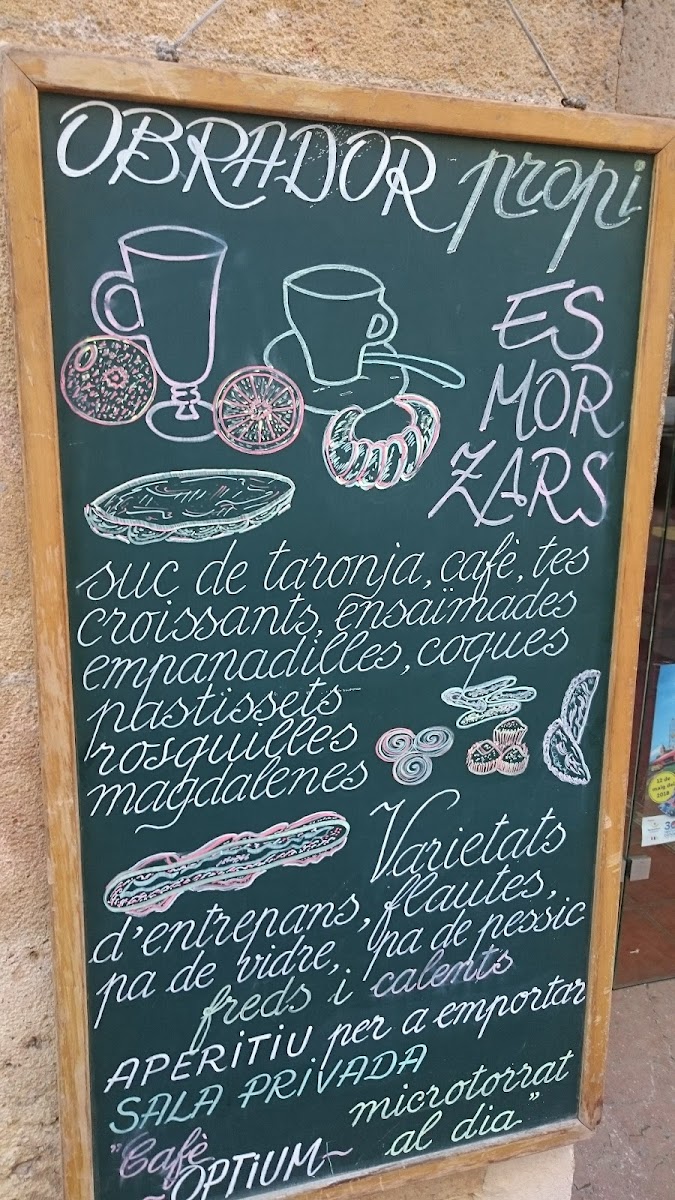 OBRADOR propi
ES
MOR
ZARS
suc de taronja, cafè, tes
croissants, ensaïmades
empanadilles, coques
pastissets
rosquilles
magdalenes
Varietats
d'entrepans, flautes,
pa de vidre, pa de pessic
freds i calents
APERITIU per a emportar
SALA PRIVADA
microtorrat
al dia"
"Cafè
~OPTIUM~